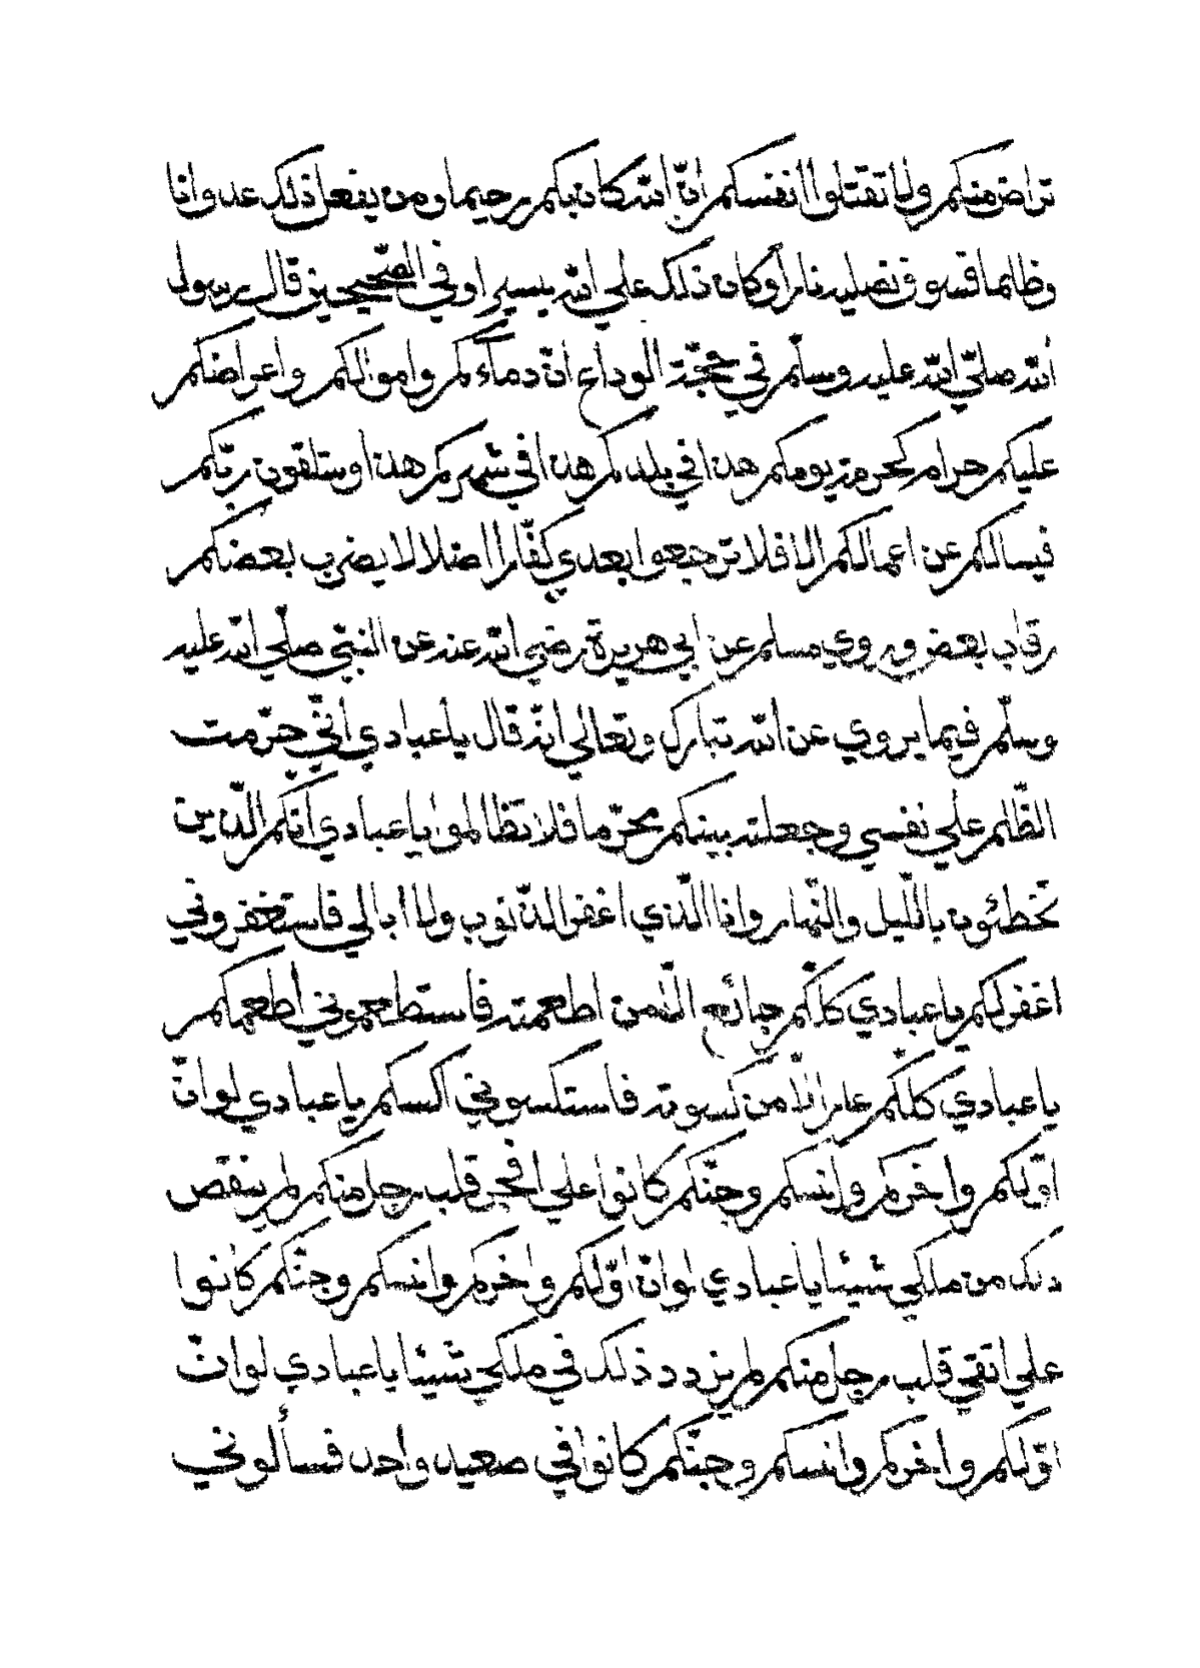 تراض منكم ولا تقتلوا انفسكم انّ الله كان بكم رحيما ومن يفعل ذلك عدوانا
وظلما فسوف نصليه نارا وكان ذلك علي الله يسيرا وفي الصّحيحين قال رسول
الله صلّي الله عليه وسلّم في حجّة الوداع انّ دماءكم واموالكم واعراضكم
عليكم حرام كحرمة يومكم هذا في بلدكم هذا في شهركم هذا وستلقون ربّكم
فيسالكم عن اعمالكم الا فلا ترجعوا بعدي كفّارا ضلالا يضرب بعضكم
رقاب بعض وروي مسلم عن ابي هريرة رضي الله عنه عن النبيّ صلّي الله عليه
وسلّم فيما يروي عن الله تبارك وتعالي انّه قال يا عبادي انّي حرّمت
الظّلم علي نفسي وجعلته بينكم محرّما فلا تظالموا يا عبادي انّكم الّذين
تخطئون باللّيل والنّهار وانا الّذي اغفر الذّنوب ولا ابالي فاستغفروني
اغفر لكم يا عبادي كلّكم جائع الّا من اطعمته فاستطعموني اطعمكم
يا عبادي كلّكم عار الّا من كسوته فاستكسوني اكسكم يا عبادي لو انّ
اوّلكم واخركم وانسكم وجنّكم كانوا علي افجر قلب رجل منكم لم ينقص
ذلك من ملكي شيئا يا عبادي لو انّ اوّلكم واخركم وانسكم وجنّكم كانوا
علي اتقي قلب رجل منكم لم يزد ذلك في ملكي شيئا يا عبادي لو انّ
اوّلكم واخركم وانسكم وجنّكم كانوا في صعيد واحد فسألوني